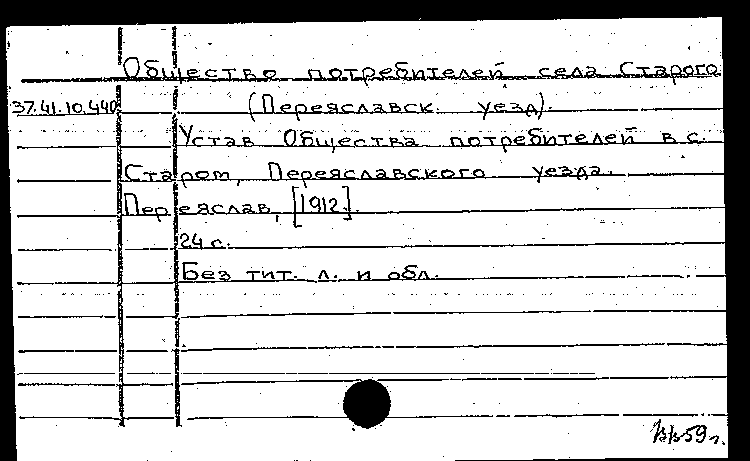 Общество потребителей села Старого
37.41.10.440 (Переяславск. уезд).
Устав Общества потребителей в с.
Старом, Переяславского уезда.
Переяслав, [1912].
24 с.
Без тит. л. и обл.
59 г.